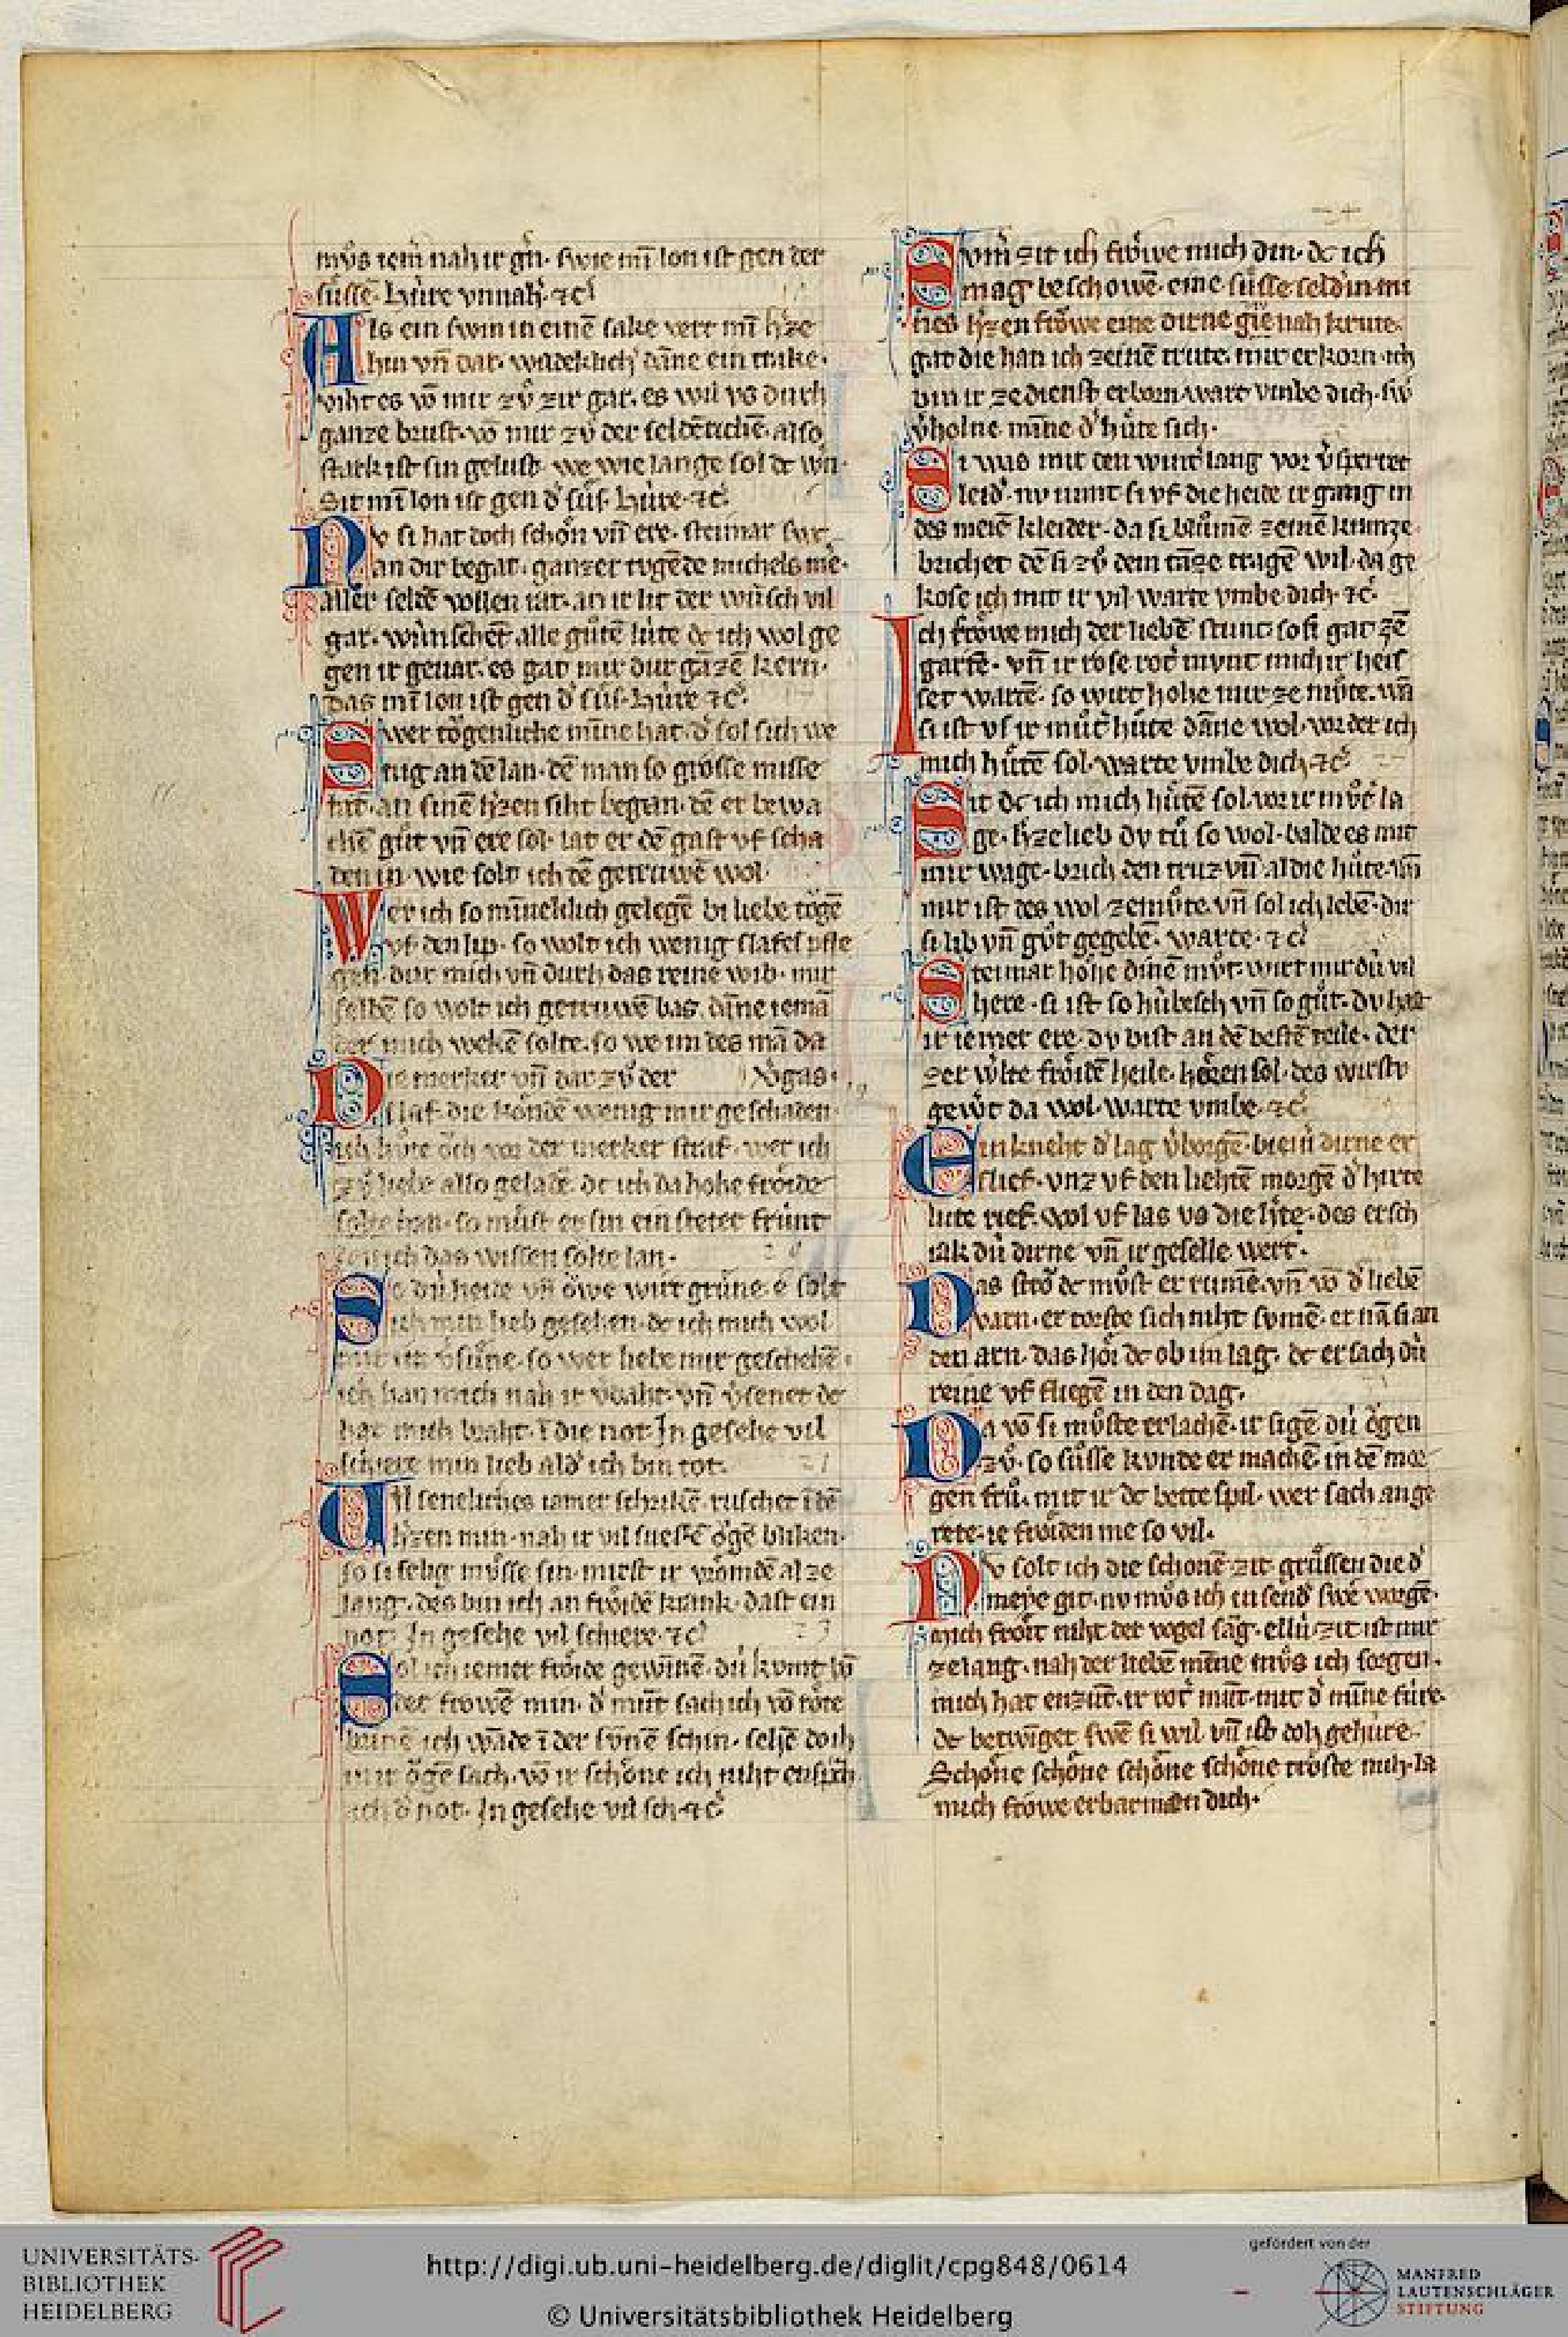 mv̊s iem̄ nah ir gn̄. swie mī lon ist gen der
süsse. Hùre vnnah. ⁊c̄
Als ein swin in einē sake vert mī h̾ze
hin vn̄ dar. wildeklich dāne ein trake.
viht es vō mir zv̊ zir gar. es wil vs durh
ganze brust. vō mir zv̊ der seldērichē. also
stark ist sin gelust. we wie lange sol dc
Sit mī lon ist gen d̾ süs. Hùre. ⁊c̄
Nv si hat doch schön vn̄ ere. steimar swc
an dir begat. ganzer tvgēde michels me.
aller selde vollen rat. an ir lit der wūsch vil
gar. wùnschēt alle gůtē lùte dc ich wol ge
gen ir gevar. es gat mir dur gāzē kern.
das mī lon ist gen d̾ süs. Hùre ⁊c̄.
Swer tögenliche mīne hat. d̾ sol sich we
nig an dē lan. dē man so grösse misse
tat. an sinē h̾zen siht began. dē er bewa
chē gůt vn̄ ere sol. lat er dē gast vf scha
den in. wie solt ich dē getruwē wol.
Wer ich so mīneklich gelegē bi liebe tögē
vf den lip. so wolt ich wenig slafes pfle
gen. dur mich vn̄ durh das reine wib. mir
selbē so wolt ich getruwē bas. dāne iemā
der mich wekē solte. so we im des mā da
Die merker vn̄ dar zv̊ der v̾gas.
slaf. die kondē wenig mir geschaden
ich hùte öch vor der merker straf. wer ich
zv̊ liebe also geladē. dc ich da hohe fröide
solte han. so mùst es sin ein steter frùnt
den ich das wissen solte lan.
So dù heide vn̄ öwe wirt grùne. e solt
ich min lieb gesehen. dc ich mich wol
mit ir v̾sùne. so wer liebe mir geschehē.
ich han mich nah ir v̾daht. vn̄ v̾senet dc
hat mich braht. ī die not. In gesehe vil
schiere min lieb ald̾ ich bin tot.
Vil seneliches iamer schrikē. ruschet ī dē
h̾zen min. nah ir vil suessē ögē bliken.
so si selig mùsse sin. mirst ir vrömdē al ze
lang. des bin ich an fröidē krank. dast ein
not. In gesehe vil schiere. ⁊c̄
Sol ich iemer fröide gewinē. dù kvmt
der frowē min. d̾ mùt sach ich vō röte
brinē ich wāde ī der svnē schin. selhē doch
mit ögē sach. vō ir schöne ich niht ensp̾ch
ach d̾ not. In gesehe vil sch. ⁊c̄
Svm̾ zit ich fröwe mich din. dc ich
mag beschowē. eine sùsse selderin mi
nes h̾zen fröwe eine dirne die nah krute.
gat die han ich ze einē trute. mir erkorn. ich
bin ir ze dienst erborn. wart vmbe dich. sw̾
v̾holne mīne d̾ hùte sich.
Si was mir den wint̾ lang vor v̾sperret
leid̾. nv nimt si vf die heide ir gang in
des meiē kleider. da si blůmē ze einē kranze
brichet dē si zv̊ dem tāze tragē wil. da ge
kose ich mit ir vil. warte vmbe dich. ⁊c̄.
Ich fröwe mich der liebē stunt so si gat zē
gartē. vn̄ ir rose rot̾ mvnt mich ir heis
set wartē. so wirt hohe mir ze mv̊te. wā
si ist vs ir mv̊t̾ hùte dāne wol. vor der ich
mich hùtē sol. warte vmbe dich. ⁊c̄
Sit dc ich mich hùtē sol. vor ir mv̊t̾ la
ge. h̾zelieb dv tv̊ so wol. balde es mit
mir wage. brich den truz vn̄ al die hùte. wā
mir ist des wol ze mv̊te. vn̄ sol ich lebē. dir
si lib vn̄ gv̊t gegebē. warte. ⁊c̄
Steimar höhe dinē mv̊t. wirt mir dù vil
here. si ist so hùbesch vn̄ so gůt. dv hast
ir iemer ere. dv bist an dē bestē teile. der
zer w̾lte fröidē heile. hörē sol. des wirstv
gew̾t da wol. warte vmbe. ⁊c̄
Ein kneht d̾ lag v̾borgē. bi ein̾ dirne er
slief. vnz vf den liehtē morgē d̾ hirte
lute rief. wol vf las vs die h̾te. des ersch
rak dù dirne vn̄ ir geselle wert.
Das stro dc mv̊st er rumē. vn̄ vō d̾ liebē
varn. er torste sich niht svmē. er nā si an
den arn. das höi dc ob im lag. dc ersach dù
reine vf fliegē in den dag.
Da vō si mv̊ste erlachē. ir sigē dù ögen
zv̊. so sùsse kvnde er machē. in dē mor
gen frů. mit ir dc bette spil. wer sach ange
rete. ie fröiden me so vil.
Nv solt ich die schonē zit grùssen die d̾
meye git. nv mv̊s ich in send̾ swe worgē.
mich fröit niht der vogel sāg. ellù zit ist mir
ze lang. nah der liebē mīne mv̊s ich sorgen.
mich hat enzùt. ir rot̾ mùt. mit d̾ mīne fùre.
dc betwīget swē si wil vn̄ ist doh gehùre.
Schöne schöne schöne schöne tröste mih. la
mich fröwe erbarmen dich.
UNIVERSITÄTS-
BIBLIOTHEK
HEIDELBERG
http://digi.ub.uni-heidelberg.de/diglit/cpg848/0614
© Universitätsbibliothek Heidelberg
gefördert von der
MANFRED
LAUTENSCHLÄGER
STIFTUNG